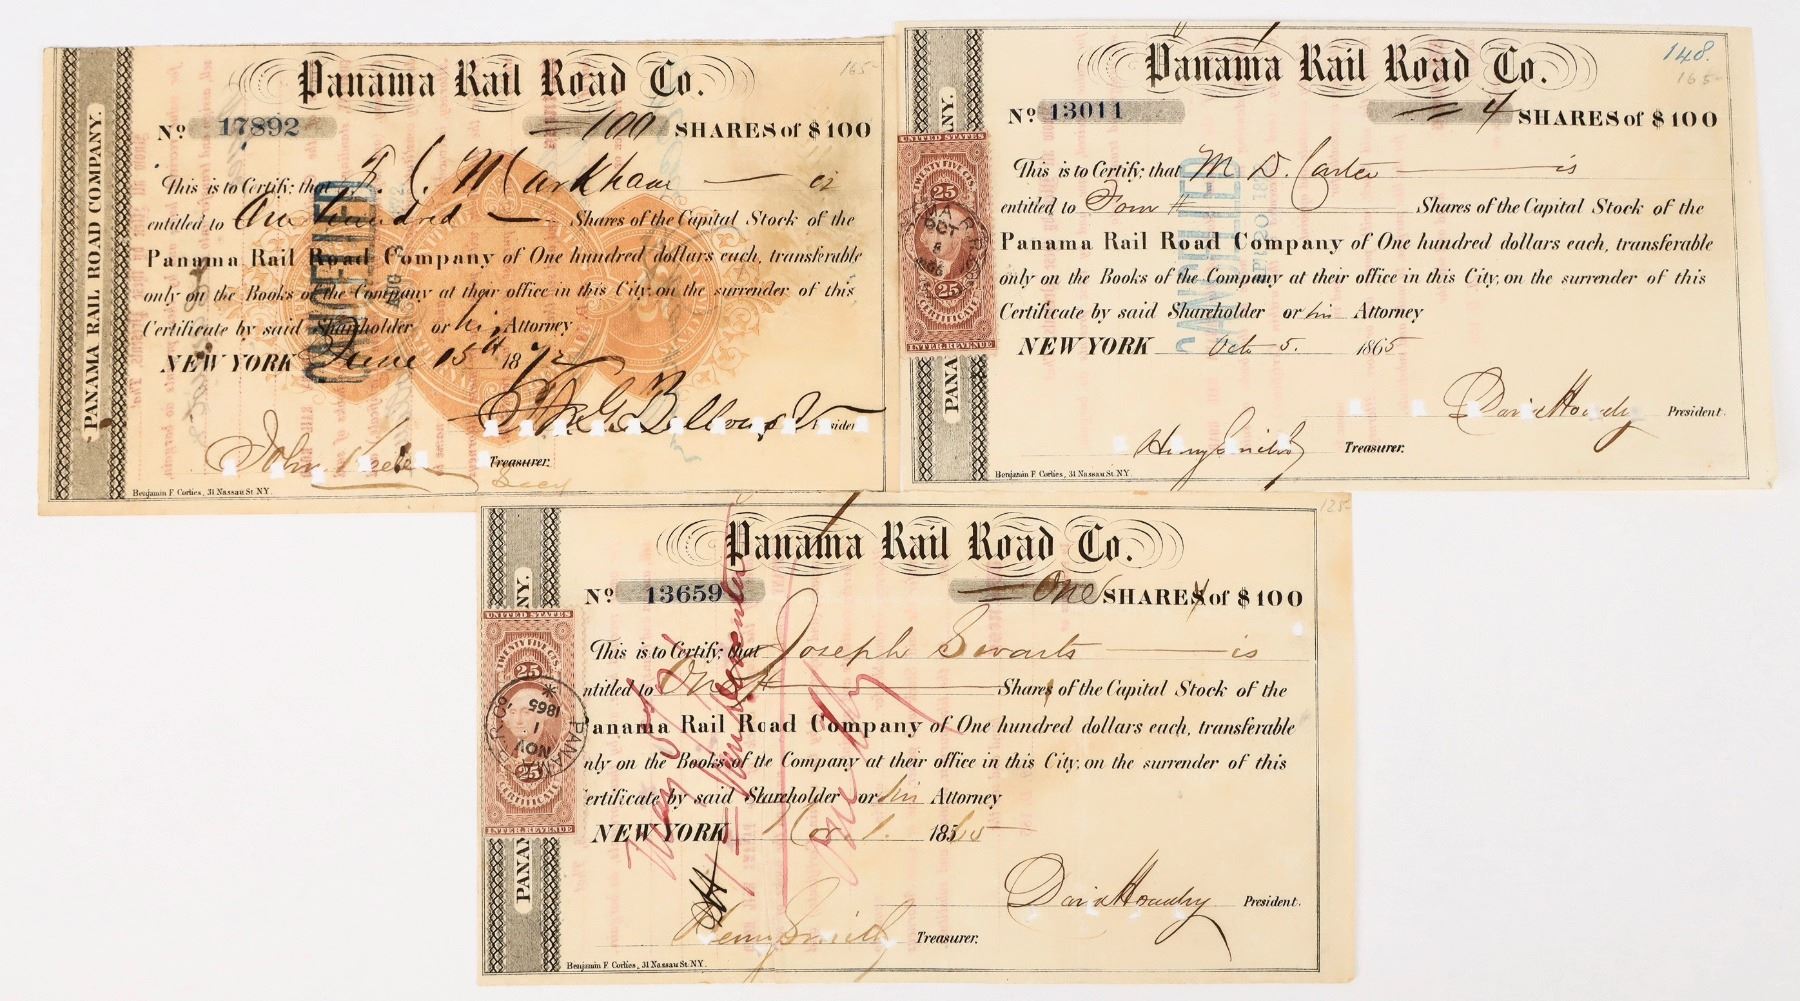 PANAMA RAIL ROAD COMPANY.
Panama Rail Road Co.
165-
No 17892
100 SHARES of $100
This is to Certify, that F. C. Markham is
entitled to One Hundred Shares of the Capital Stock of the
Panama Rail Road Company of One hundred dollars each, transferable
only on the Books of the Company at their office in this City, on the surrender of this
Certificate by said Shareholder or his Attorney
NEW YORK June 15th 1872
CANCELLED
President
Treasurer.
Secy
Benjamin F. Corlies, 31 Nassau St. N.Y.
Panama Rail Road Co.
148.
165-
No 13011
4 SHARES of $100
This is to Certify, that M D. Carter is
entitled to Four Shares of the Capital Stock of the
Panama Rail Road Company of One hundred dollars each, transferable
only on the Books of the Company at their office in this City, on the surrender of this
Certificate by said Shareholder or his Attorney
NEW YORK Oct 5. 1865
CANCELLED
David Hoadley President.
Henry Smith Treasurer.
Benjamin F. Corlies, 31 Nassau St. N.Y.
NY.
UNITED STATES
TWENTY FIVE CTS.
25
OCT
5
1865
25
CERTIFICATE
INTER. REVENUE
PANA
Panama Rail Road Co.
125-
No 13659
One SHARES of $100
This is to Certify, that Joseph Swarts is
ntitled to One Shares of the Capital Stock of the
anama Rail Road Company of One hundred dollars each, transferable
nly on the Books of the Company at their office in this City, on the surrender of this
ertificate by said Shareholder or his Attorney
NEW YORK Nov. 1. 1865
David Hoadley President.
Henry Smith Treasurer.
Benjamin F. Corlies, 31 Nassau St. N.Y.
NY.
UNITED STATES
TWENTY FIVE CTS.
25
PANAMA R. R. CO.
NOV
1
1865
25
CERTIFICATE
INTER. REVENUE
PANA